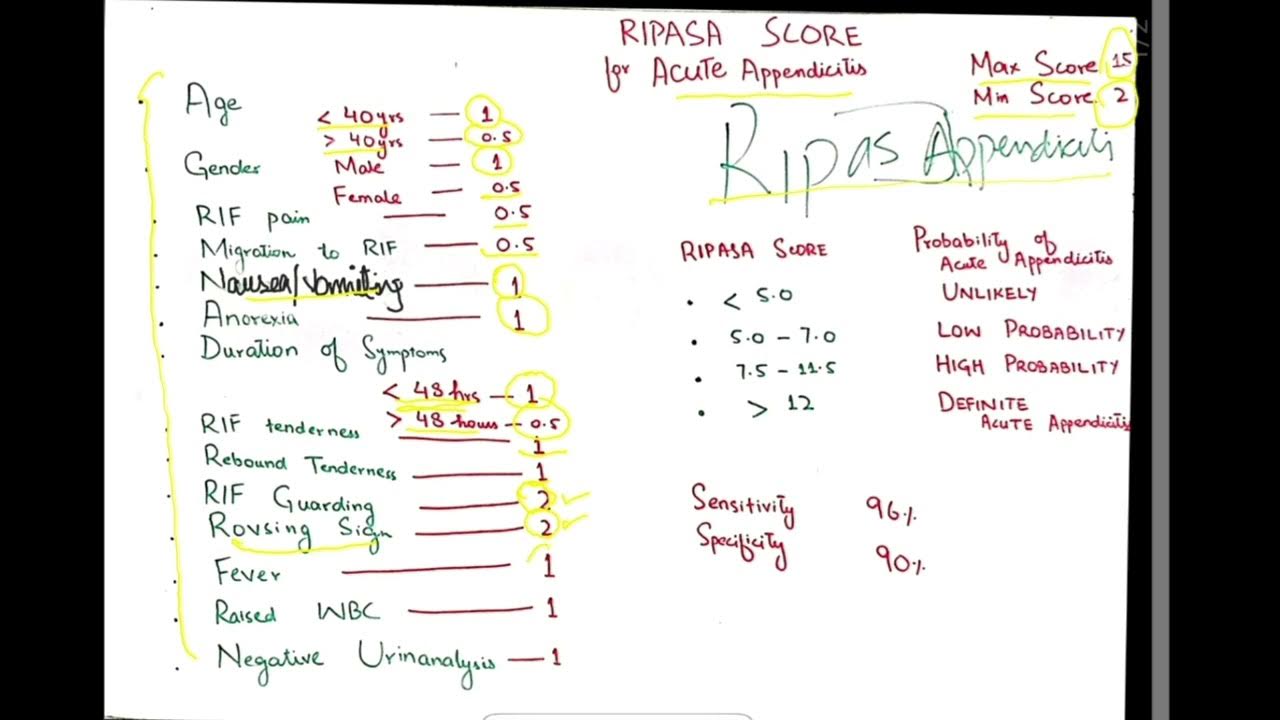 RIPASA SCORE
for ACUTE Appendicitis
Max Score 15
Min Score 2
Ripas Appendiciti
Age
< 40yrs — 1
> 40yrs — 0.5
Gender Male — 1
Female — 0.5
RIF pain — 0.5
Migration to RIF — 0.5
Nausea/Vomitting — 1
Anorexia — 1
Duration of Symptoms
< 48 hrs — 1
> 48 hours — 0.5
RIF tenderness — 1
Rebound Tenderness — 1
RIF Guarding — 2
Rovsing Sign — 2
Fever — 1
Raised WBC — 1
Negative Urinanalysis — 1
RIPASA SCORE Probability of
Acute Appendicitis
< 5.0 UNLIKELY
5.0 – 7.0 LOW PROBABILITY
7.5 – 11.5 HIGH PROBABILITY
> 12 DEFINITE
ACUTE Appendicitis
Sensitivity 96%
Specificity 90%